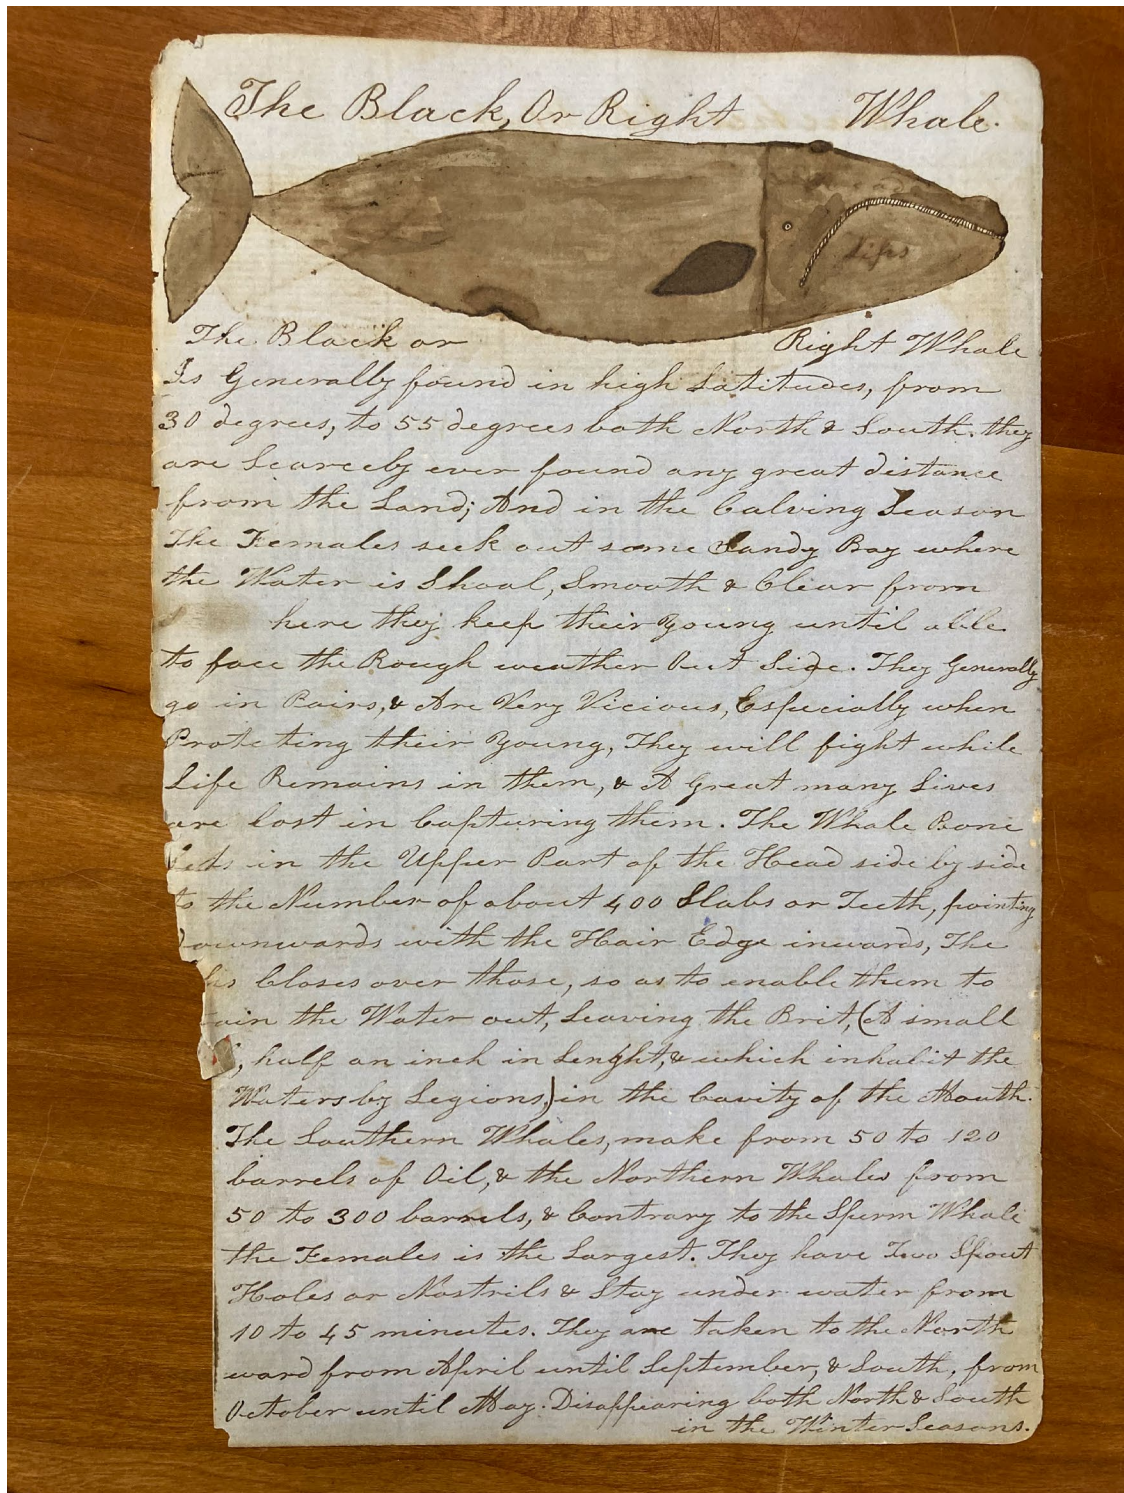 The Black, Or Right Whale.
Lips
The Black or Right Whale
Is Generally found in high Latitudes, from
30 degrees, to 55 degrees both North & South. they
are Scarcely ever found any great distance
from the Land; And in the Calving Season
The Females seek out some Sandy Bay where
the Water is Shoal, Smooth & Clear from
here they keep their Young until able
to face the Rough weather Out Side. They Generally
go in Pairs, & Are Very Vicious, Especially when
Protecting their Young, They will fight while
Life Remains in them, & A Great many Lives
are lost in Capturing them. The Whale Bone
in the Upper Part of the Head side by side
to the Number of about 400 Slabs or Teeth, pointing
downwards with the Hair Edge inwards, The
Closes over those, so as to enable them to
the Water out, Leaving the Brit, (A small
, half an inch in Lenght, & which inhabit the
Waters by Legions,) in the Cavity of the Mouth.
The Southern Whales, make from 50 to 120
barrels of Oil, & the Northern Whales from
50 to 300 barrels, & Contrary to the Sperm Whale
the Females is the Largest. They have Two Spout
Holes or Nostrils & Stay under water from
10 to 45 minutes. They are taken to the North
ward from April until September, & South, from
October until May. Disappearing both North & South
in the Winter Seasons.